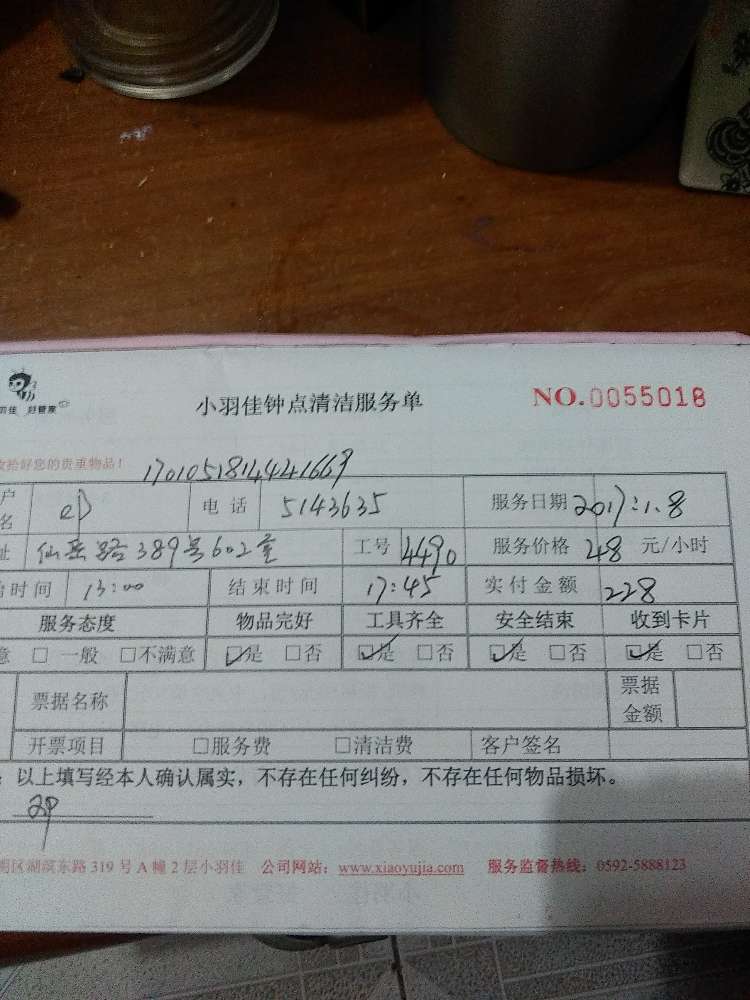 羽佳 好管家
小羽佳钟点清洁服务单 NO.0055018
收拾好您的贵重物品!
17010518144241669
户名 电话 5143635 服务日期 2017.1.8
址 仙岳路389号602室 工号 4490 服务价格 48 元/小时
时间 13:00 结束时间 17:45 实付金额 228
服务态度 物品完好 工具齐全 安全结束 收到卡片
意 □ 一般 □不满意 ☑是 □否 ☑是 □否 ☑是 □否 ☑是 □否
票据名称 票据金额
开票项目 □服务费 □清洁费 客户签名
: 以上填写经本人确认属实，不存在任何纠纷，不存在任何物品损坏。
明区湖滨东路 319 号 A 幢 2 层小羽佳 公司网站：www.xiaoyujia.com 服务监督热线：0592-5888123